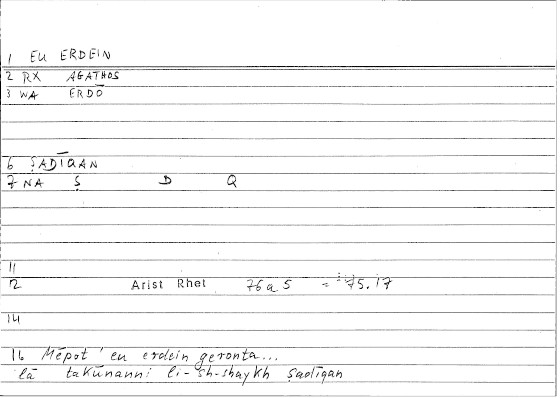 1 EU ERDEIN
2 RX AGATHOS
3 WA ERDŌ
6 ṢADĪQAN
7 NA Ṣ D Q
11
12 Arist Rhet 76a5 = 75.17
14
16 Mēpot' eu erdein geronta...
lā takūnanni li-sh-shaykh ṣadīqan